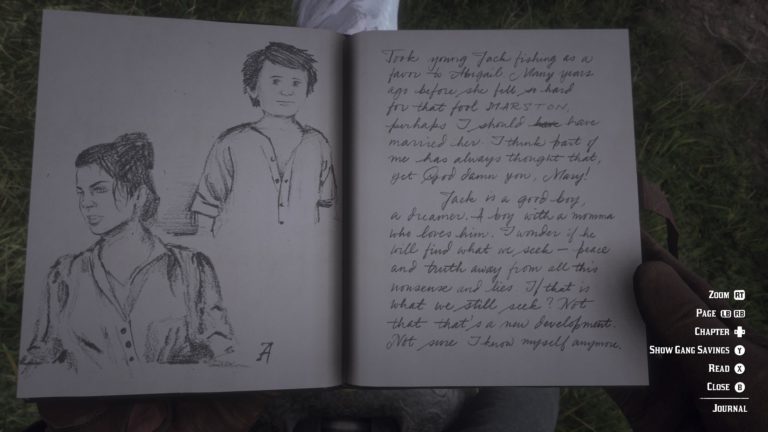 A
Took young Jack fishing as a
favor to Abigail. Many years
ago before she fell so hard
for that fool MARSTON,
perhaps I should have have
married her. I think part of
me has always thought that,
yet God damn you, Mary!
Jack is a good boy,
a dreamer. A boy with a momma
who loves him. I wonder if he
will find what we seek – peace
and truth away from all this
nonsense and lies. If that is
what we still seek? Not
that that's a new development.
Not sure I know myself anymore.
ZOOM RT
PAGE LB RB
CHAPTER
SHOW GANG SAVINGS Y
READ X
CLOSE B
JOURNAL